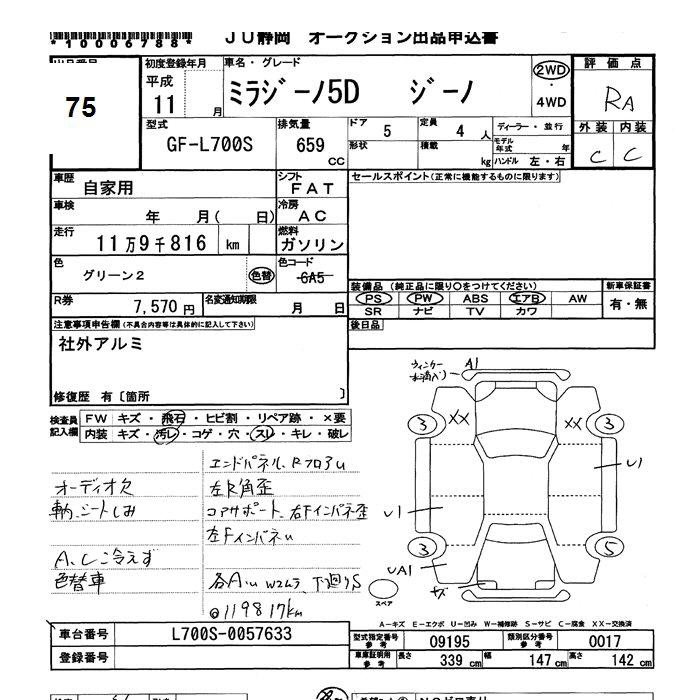 *10006788*
JU静岡 オークション出品申込書
75
初度登録年月
平成 11 月
車名・グレード
ミラジーノ5D ジーノ
2WD
・
4WD
評価点
RA
外装 内装
C C
型式
GF-L700S
排気量
659 cc
ドア 5
定員 4 人
ディーラー・並行
形状
積載 kg
モデル年式 年
ハンドル 左・右
車歴
自家用
シフト
FAT
セールスポイント(正常に機能するものに限ります)
車検
年 月( 日)
冷房
AC
走行
11万9千816 km
燃料
ガソリン
色
グリーン2
色替
色コード
6A5
装備品(純正品に限り○をつけてください)
新車保証書
PS PW ABS エアB AW
有・無
SR ナビ TV カワ
R券 7,570円
名変通知期限 月 日
後日品
注意事項申告欄(不具合内容等は具体的に記入して下さい)
社外アルミ
修復歴 有〔箇所 〕
検査員記入欄
FW キズ・飛石・ヒビ割・リペア跡・×要
内装 キズ・汚レ・コゲ・穴・スレ・キレ・破レ
エンドパネル、Rフロアu
オーディオ欠
左R角歪
シートしみ
コアサポート、右Fインパネ歪
左Fインパネu
A,C冷えず
色替車
各A・u W2ムラ 下廻りS
@119817km
ウィンカー
A1
XX XX
3 3
U1
U1
3 5
UA1
キズ
スペア
A-キズ E-エクボ U-凹み W-補修跡 S-サビ C-腐食 XX-交換済
車台番号 L700S-0057633
型式指定番号 参考 09195
類別区分番号 参考 0017
登録番号
車庫証明用 参考 長さ 339 cm 幅 147 cm 高さ 142 cm